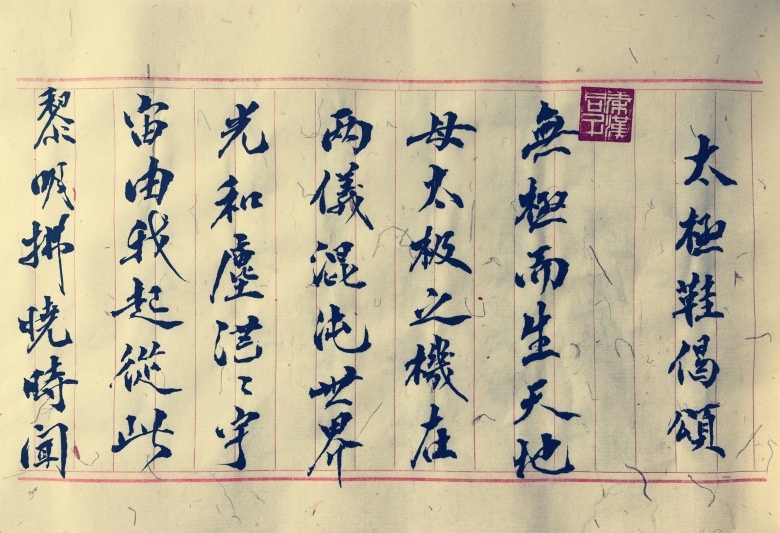 太極鞋偈頌
無極而生天地
母太极之機在
两儀混沌世界
光和塵茫〻宇
宙由我起從此
黎明拂曉時聞